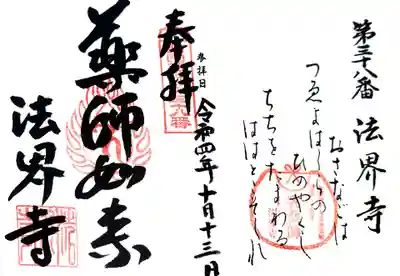 第三十八番 法界寺
おさなごは
ひのやくし
ちちをたまわる
ははとこそしれ
奉拝
参拝日
令和四年十月十三日
薬師如来
法界寺